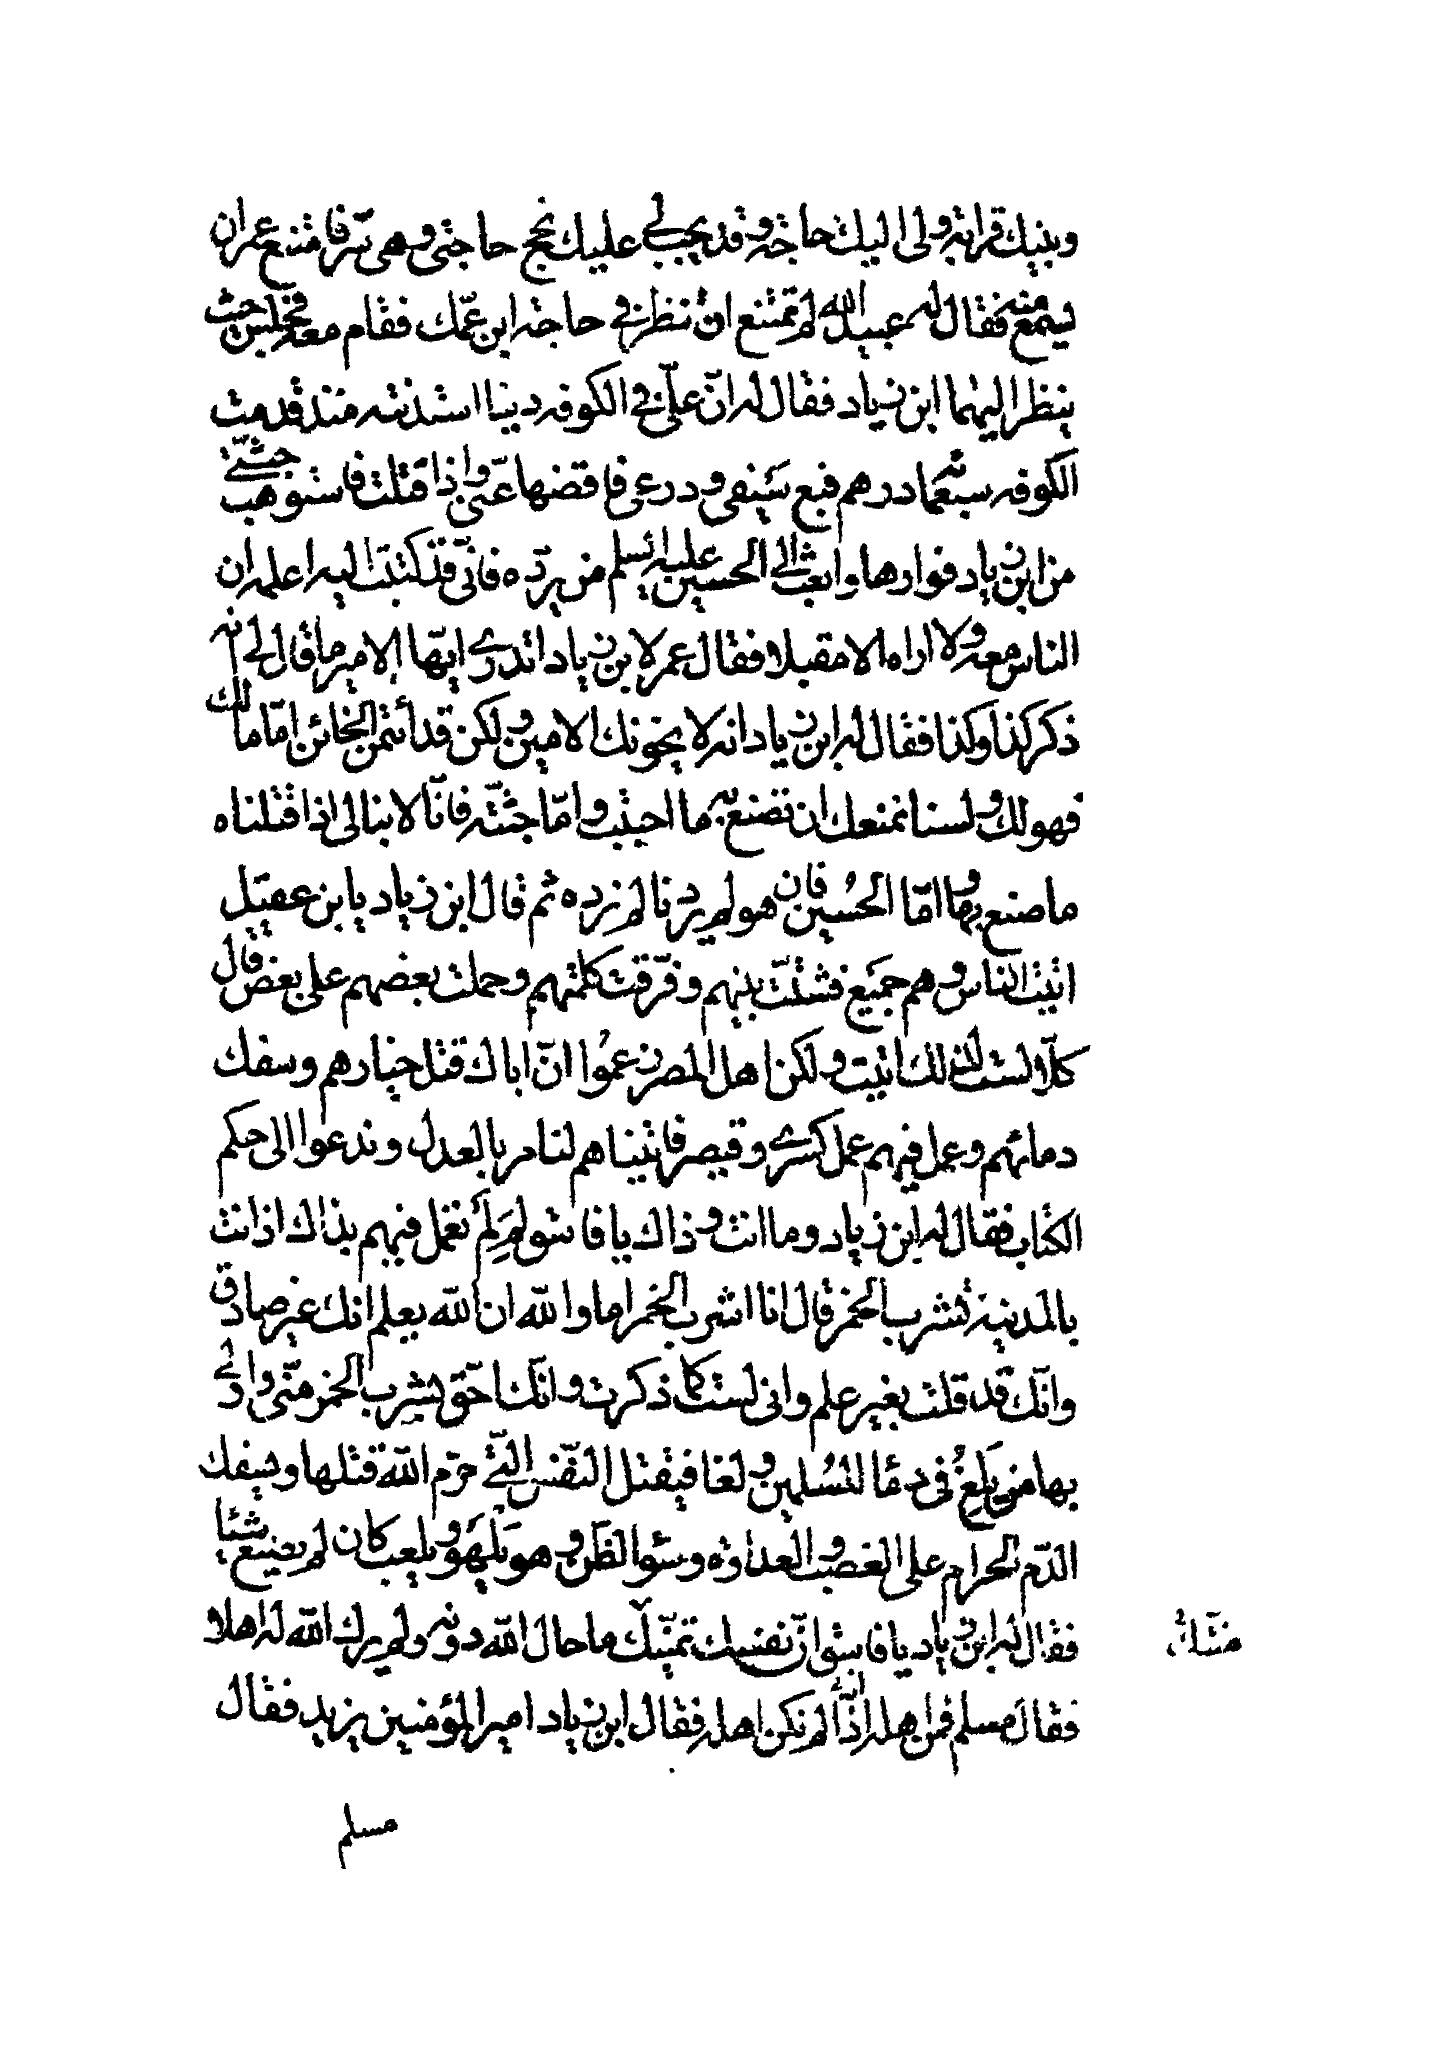 وبينك قرابة ولى اليك حاجة وقد يجب لي عليك نجح حاجتى وهى سر فامتنع عمران
يسمع منه فقال له عبيد الله لم تمتنع ان تنظر في حاجة ابن عمّك فقام معه فجلس حيث
ينظر اليهما ابن زياد فقال له انّ علىّ في الكوفه دينا استدنته منذ قدمت
الكوفه سبعمائه درهم فبع سيفى ودرعى فاقضها عنّى واذا قتلت فاستوهب جثّتي
من ابن زياد فوارها وابعث الي الحسين عليه السلم من يردّه فانّى قد كتبت اليه اعلمه ان
الناس معه ولا اراه الا مقبلا فقال عمر لابن زياد اتدري ايّها الامير ما قال لي انه
ذكر كذا وكذا فقال له ابن زياد انه لا يخونك الامين ولكن قد أئتمن الخائن امّا مالك
فهو لك ولسنا نمنعك ان تصنع به ما احببت وامّا جثّته فانّا لا نبالى اذا قتلناه
ما صنع بها وامّا الحُسين فان هو لم يردنا لم نرده ثم قال ابن زياد يا بن عقيل
اتيت الناس وهم جميع فشتّت بينهم وفرّقت كلمتهم وحملت بعضهم على بعض قال
كلّا لست لذلك اتيت ولكن اهل المصر زعمُوا انّ اباك قتل خيارهم وسفك
دمائهم وعمل فيهم عمل كسري وقيصر فاتيناهم لنامر بالعدل وندعوا الى حكم
الكتاب فقال له ابن زياد وما انت وذاك يا فاسق لِمَ لم تعمل فيهم بذاك اذ انت
بالمدينة تشرب الخمر قال انا اشرب الخمر اما والله ان الله يعلم انك غير صادق
وانّك قد قلت بغير علم وانى لست كما ذكرت وانّك احّق بشرب الخمر منّى واولي
بها من يلغُ في دماء المُسلمين ولغا فيقتل النّفس الّتي حرّم الله قتلها ويسفك
الدّم الحرام على الغصب والعداوة وسوء الظّن وهو يَلهَو ويلعب كان لم يصنع شيئا
فقال له ابن زياد يا فاسق انّ نفسك تمنّيك ما حال الله دونه ولم يرك الله له اهلا
فقال مسلم فمن اهله اذا لم نكن اهله فقال ابن زياد امير المؤمنين يزيد فقال
مسلم